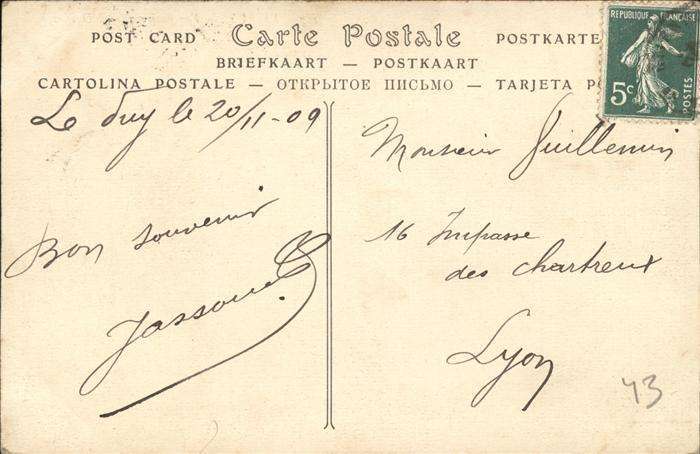 POST CARD Carte Postale POSTKARTE
BRIEFKAART — POSTKAART
CARTOLINA POSTALE — ОТКРЫТОЕ ПИСЬМО — TARJETA PO
REPUBLIQUE FRANÇAISE
5c
POSTES
Le Puy le 20/11-09
Bon souvenir
Monsieur Guillemin
16 Impasse
des chartreux
Lyon
43